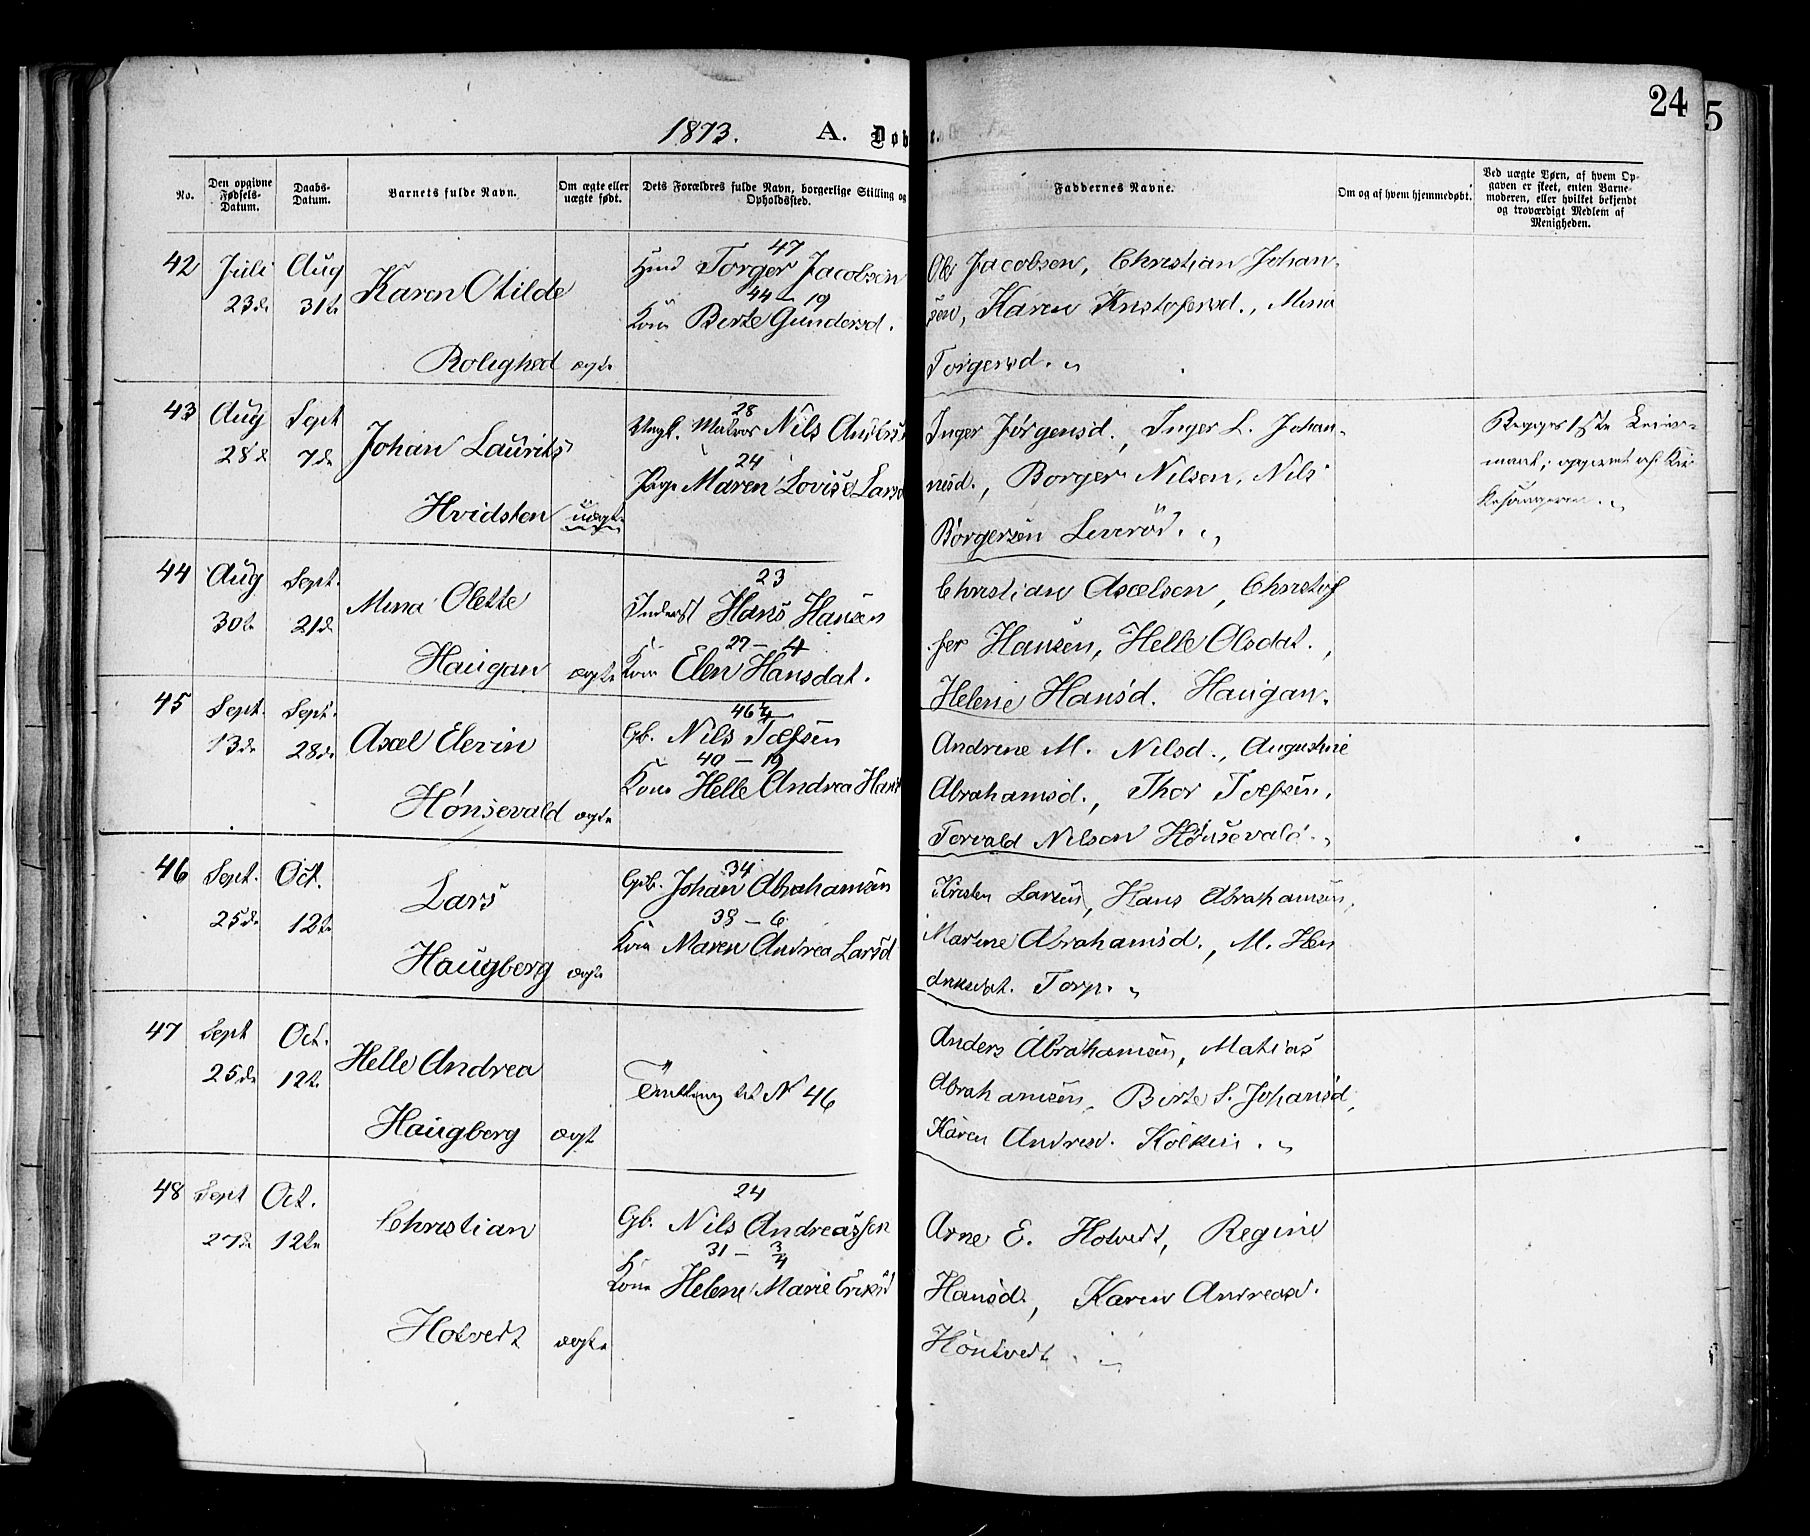 24
5
1873. A. Døb t.
No.
Den opgivne Fødsels-Datum.
Daabs-Datum.
Barnets fulde Navn.
Om ægte eller uægte født.
Dets Forældres fulde Navn, borgerlige Stilling og Opholdssted.
Faddernes Navne.
Om og af hvem hjemmedøbt.
Ved uægte Børn, af hvem Opgaven er skeet, enten Barnemoderen, eller hvilket bekjendt og troværdigt Medlem af Menigheden.
42 Juli Aug
23de 31te
Karen Otilde
Rolighed ægte
47
Torger Jacobsen
44 – 19
Kone Berte Gundersd.
Ole Jacobsen, Christian Johan-
sen, Karen Kristofersd., Mina
Torgersd.
43 Aug Sept
28de 7de
Johan Laurits
Hvidsten uægte
28
Ungk. Matros Nils Anders
24
Pige Maren Lovise Larsd
Inger Jørgensd., Inger L. Johan-
nisd., Borger Nilsen, Nils
Borgersen Leverød.
44 Aug Sept.
30te 21de
Mina Olette
Haugan ægte
23
Inderst Hans Hansen
27 – 4
Kone Elen Hansdat.
Christian Axelsen, Christof
fer Hansen, Helle Olsdat.,
Helene Hansd. Haugan.
45 Sept. Sept.
13de 28de
Axel Elevin
Hönsevald ægte
46
Gb. Nils Tollefsen
40 – 19
Kone Helle Andrea Hans
Andrine M. Nilsd., Augustine
Abrahamsd., Thor
Torvald Nilsen Hönsevald.
46 Sept. Oct.
25de 12te
Lars
Haugberg ægte
34
Gb. Johan Abrahamsen
38 – 6
Kone Maren Andrea Larsd
Kristen Larsen, Hans Abrahamsen,
Martine Abrahamsd., M. Hen
Torp.
47 Sept Oct.
25de 12te
Helle Andrea
Haugberg ægt
Tvilling til N 46
Anders Abrahamsen, Matias
Abrahamsen, Berte S. Johansd,
Karen Andresd.
48 Sept Oct.
27de 12te
Christian
Hotvedt ægte
24
Gb. Nils Andreassen
31 – 3/4
Kone Helene Marie Eriksd
Arne E. Hotvedt, Regine
Hansd., Karen Andreasd.
Hontvedt.